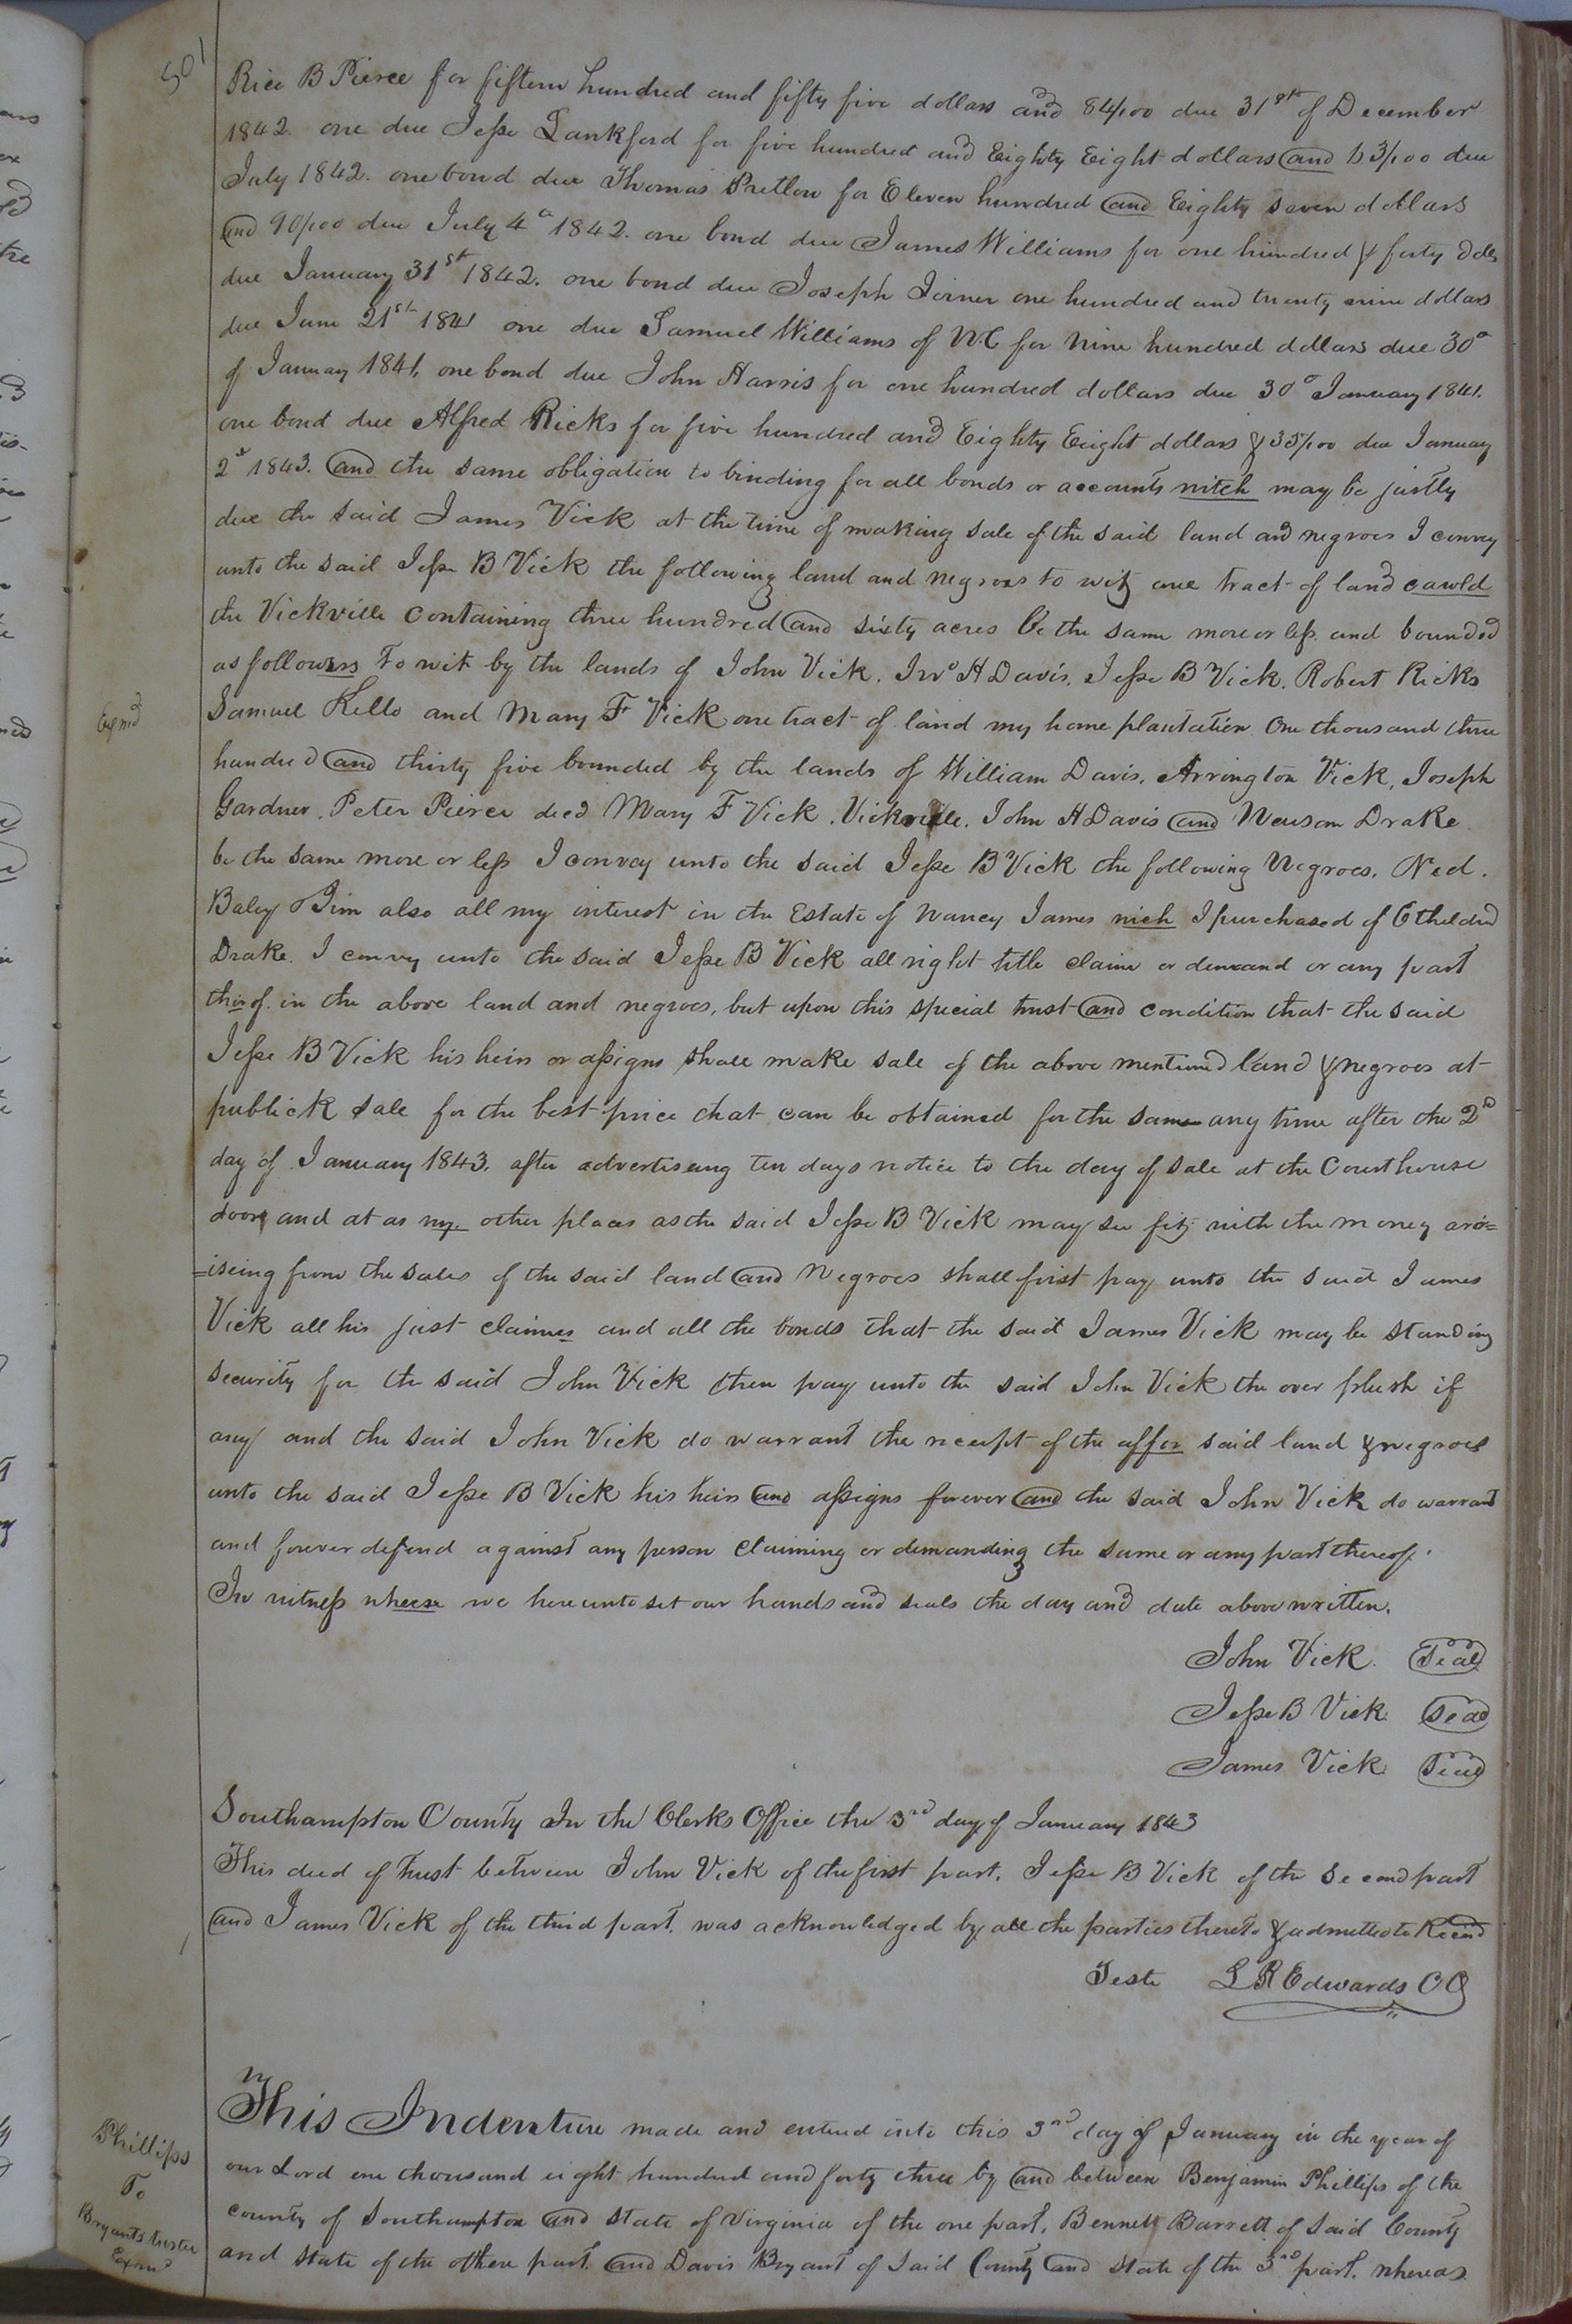 501
Rice B Pierce for fifteen hundred and fifty five dollars and 84/100 due 31st of December
1842. one due Jesse Lankford for five hundred and Eighty Eight dollars and 63/100 due
July 1842. one bond due Thomas Pretlow for Eleven hundred and Eighty seven dollars
and 90/100 due July 4th 1842. one bond due James Williams for one hundred & forty dolls
due January 31st 1842. one bond due Joseph Joiner one hundred and twenty nine dollars
due June 21st 1841 one due Samuel Williams of NC for nine hundred dollars due 30th
of January 1841, one bond due John Harris for one hundred dollars due 30th January 1841.
one bond due Alfred Ricks for five hundred and Eighty Eight dollars & 35/100 due January
2d 1843. and the same obligation to binding for all bonds or accounts nitch may be justly
due the said James Vick at the time of making sale of the said land and negroes I convey
unto the said Jesse B Vick the following land and negroes to wit, one tract of land cawld
the Vickville containing three hundred and sixty acres be the same more or less and bounded
as followes To wit by the lands of John Vick. Jno H Davis, Jesse B Vick. Robert Ricks
Samuel Kello and Mary F Vick one tract of land my home plantation One thousand three
hundred and thirty five bounded by the lands of William Davis, Arrington Vick, Joseph
Gardner, Peter Pierce decd Mary F Vick, Vickville. John H Davis and Newsom Drake
be the same more or less I convey unto the said Jesse B Vick the following Negroes. Ned.
Baley Jim also all my interest in the Estate of Nancy James nich I purchased of Etheldred
Drake. I convey unto the said Jesse B Vick all right title claim or demand or any part
thirof. in the above land and negroes, but upon this special trust and condition that the said
Jesse B Vick his heirs or assigns shall make sale of the above mentioned land & negroes at
publick sale for the best price that can be obtained for the same any time after the 2nd
day of January 1843. after advertiseing ten days notice to the day of sale at the Courthouse
door, and at as ny other places as the said Jesse B Vick may see fit, with the money aro=
=iseing from the sales of the said land and Negroes shall first pay unto the said James
Vick all his just claimes and all the bonds that the said James Vick may be standing
security for the said John Vick then pay unto the said John Vick the over plush if
any and the said John Vick do warrant the receipt of the affor said land & negroes
unto the said Jesse B Vick his heirs and assigns forever and the said John Vick do warrant
and forever defend against any person claiming or demanding the same or any part thereof.
In witness wheese we hereunto set our hands and seals the day and date above written.
John Vick. Seal
Jesse B Vick Seal
James Vick Seal
Southampton County In the Clerks Office the 3rd day of January 1843
This deed of trust between John Vick of the first part, Jesse B Vick of the second part
and James Vick of the third part, was acknowledged by all the parties thereto & admitted to Record
Teste L R Edwards CC
This Indenture made and entered into this 3rd day of January in the year of
our Lord one thousand eight hundred and forty three by and between Benjamin Phillips of the
county of Southampton and State of Virginia of the one part, Bennett Barrett of said County
and state of the other part and Davis Bryant of said County and state of the 3rd part. whereas
Exmd
Phillips
To
Bryants trustee
Exmd